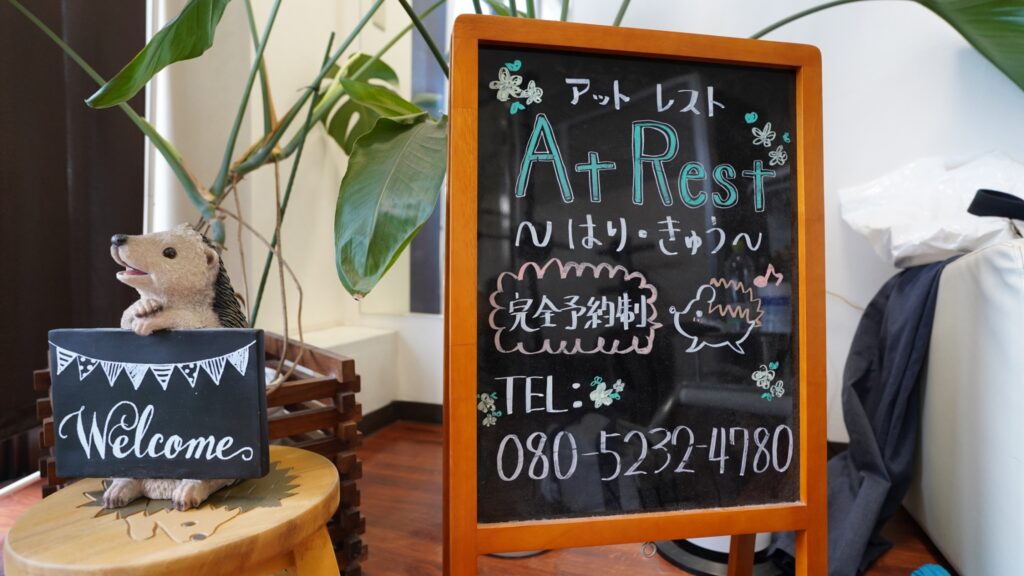 アット レスト
At Rest
～はり・きゅう～
完全予約制
TEL:
080-5232-4780
Welcome